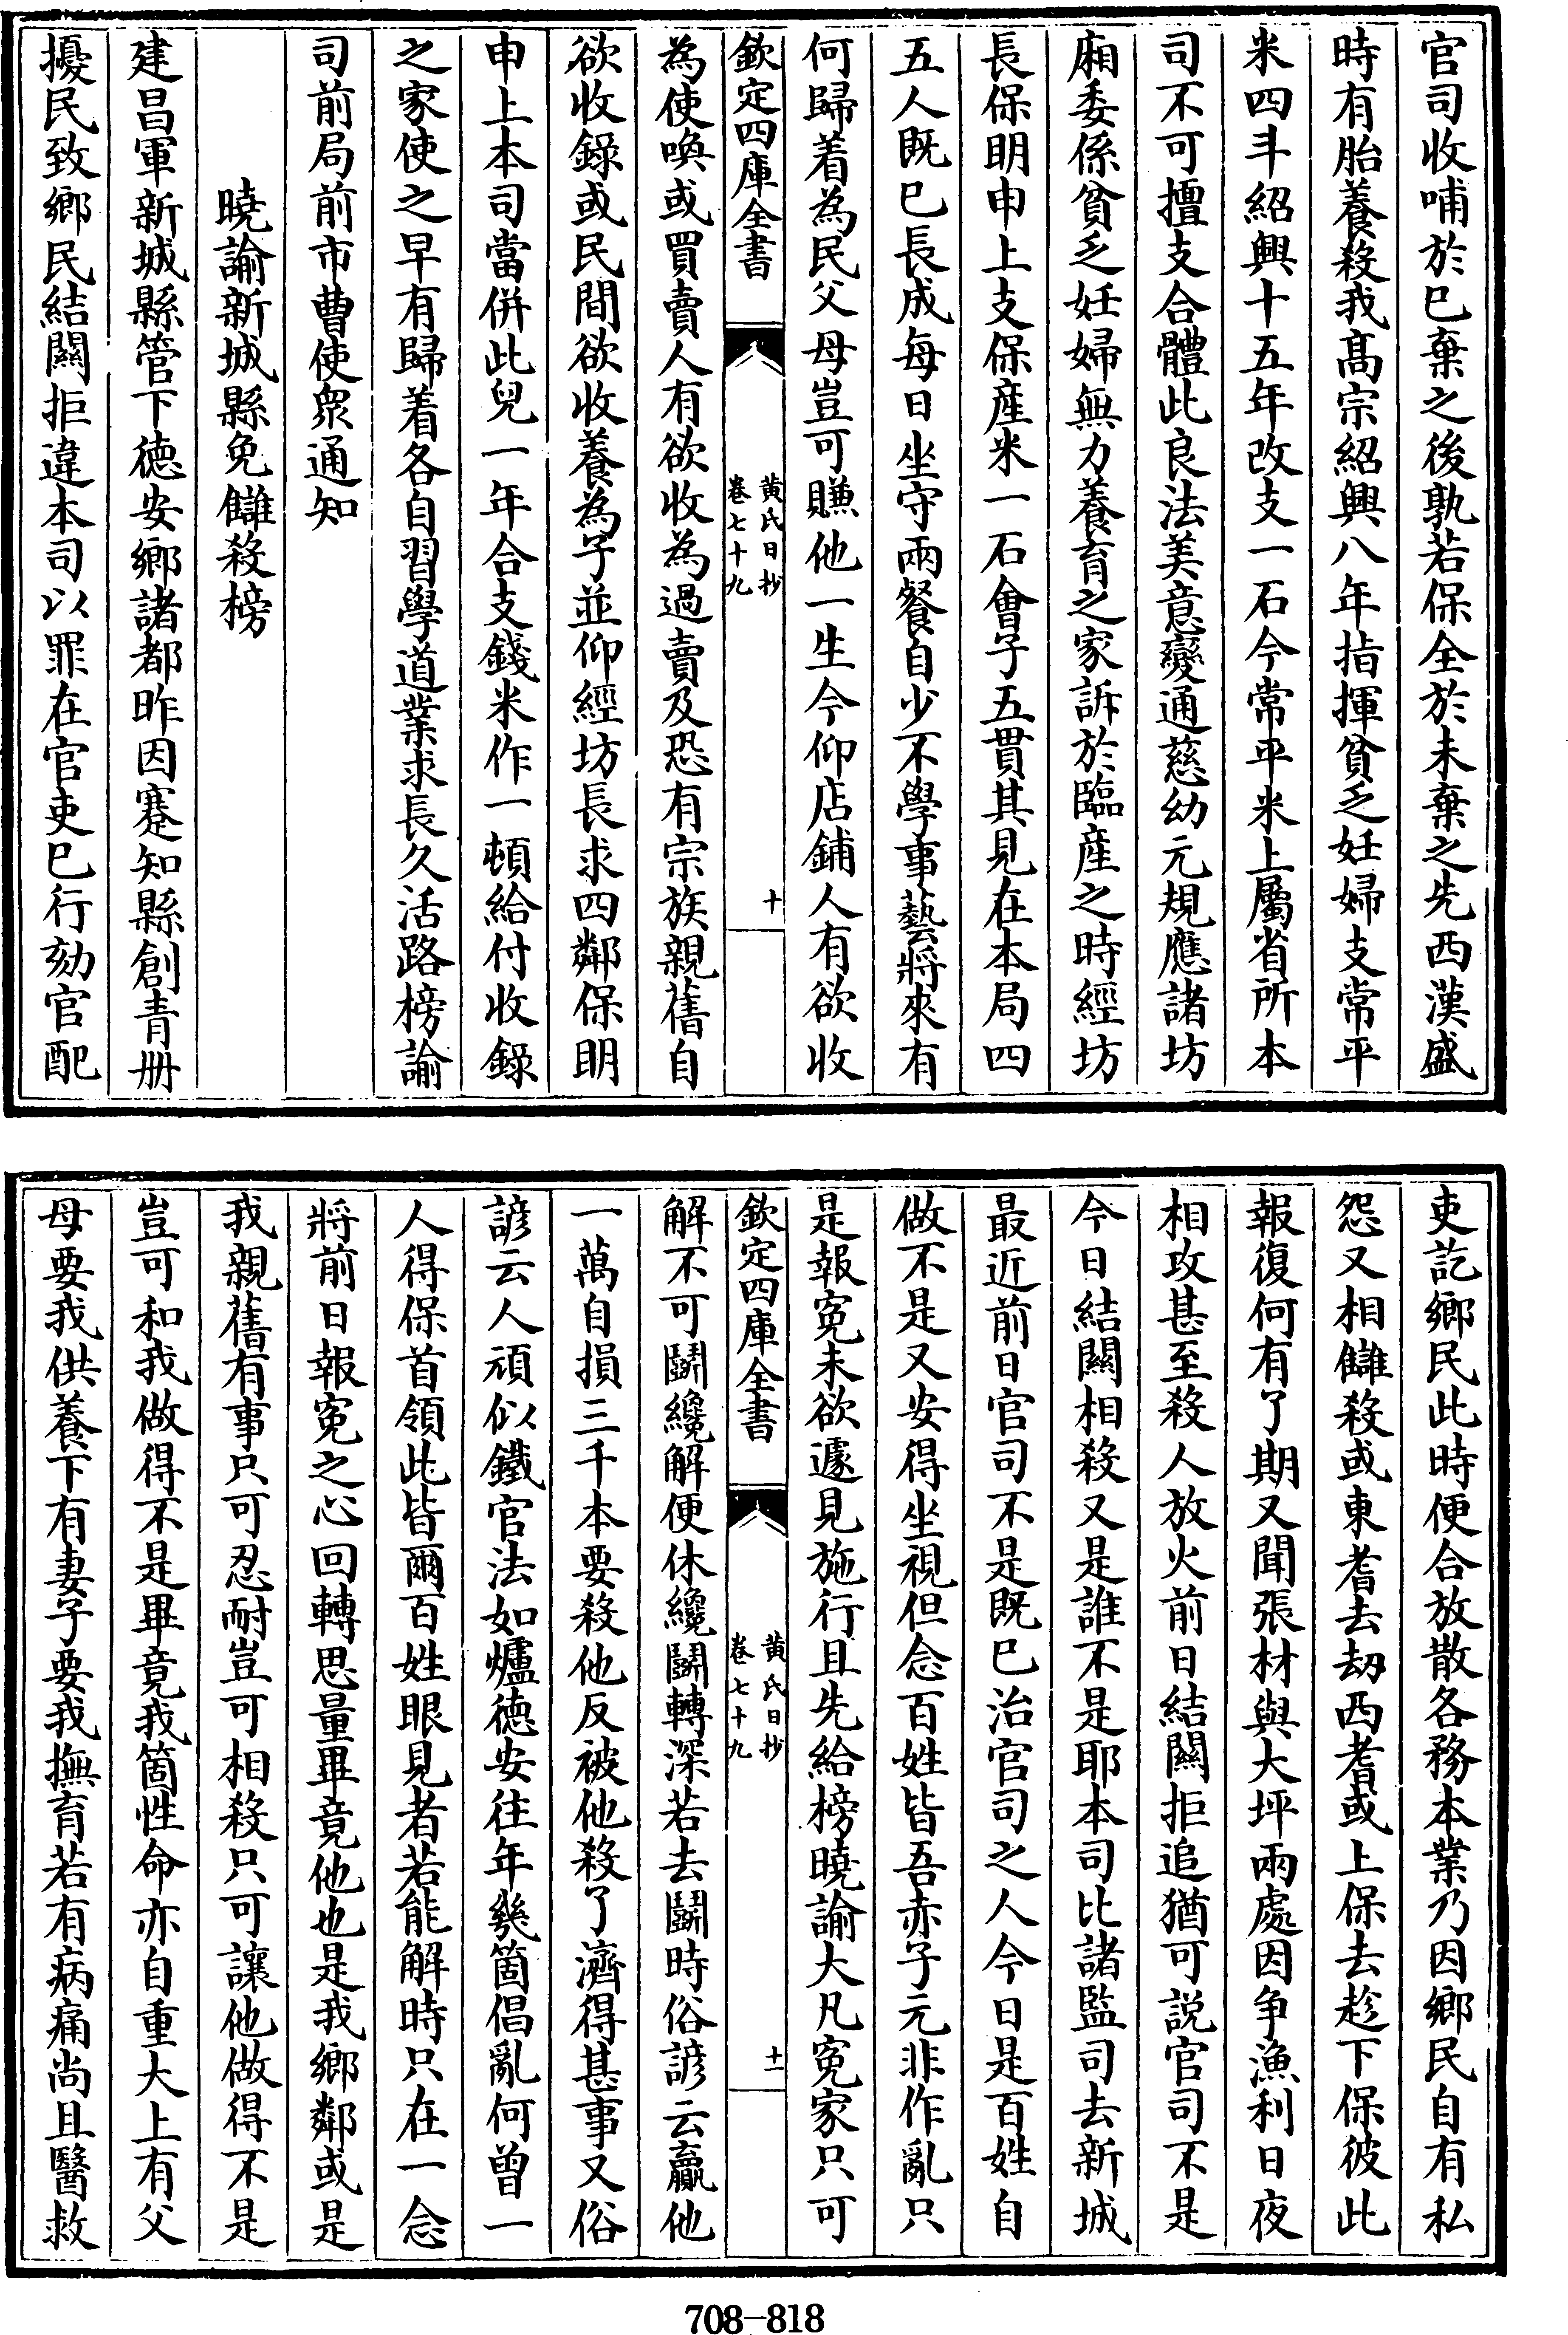 官司收哺於已棄之後孰若保全於未棄之先西漢盛
時有胎養殺我高宗紹興八年指揮貧乏妊婦支常平
米四斗紹興十五年改支一石今常平米上屬省所本
司不可擅支合體此良法美意變通慈幼元規應諸坊
廂委係貧乏妊婦無力養育之家訴於臨産之時經坊
長保明申上支保産米一石會子五貫其見在本局四
五人既已長成每日坐守兩餐自少不學事藝將來有
何歸着為民父母豈可賺他一生今仰店鋪人有欲收
欽定四庫全書
黄氏日抄
卷七十九
十
為使喚或買賣人有欲收為過賣及恐有宗族親舊自
欲收錄或民間欲收養為子並仰經坊長求四鄰保明
申上本司當併此兒一年合支錢米作一頓給付收錄
之家使之早有歸着各自習學道業求長久活路榜諭
司前局前市曹使衆通知
曉諭新城縣免讎殺榜
建昌軍新城縣管下德安鄉諸都昨因蹇知縣創青册
擾民致鄉民結關拒違本司以罪在官吏已行劾官配
吏訖鄉民此時便合放散各務本業乃因鄉民自有私
怨又相讎殺或東耆去刼西耆或上保去趁下保彼此
報復何有了期又聞張材與大坪兩處因争漁利日夜
相攻甚至殺人放火前日結關拒追猶可説官司不是
今日結關相殺又是誰不是耶本司比諸監司去新城
最近前日官司不是既已治官司之人今日是百姓自
做不是又安得坐視但念百姓皆吾赤子元非作亂只
是報寃未欲遽見施行且先給榜曉諭大凡寃家只可
欽定四庫全書
黄氏日抄
卷七十九
十一
解不可鬭纔解便休纔鬭轉深若去鬭時俗諺云贏他
一萬自損三千本要殺他反被他殺了濟得甚事又俗
諺云人頑似鐵官法如爐德安往年幾箇倡亂何曾一
人得保首領此皆爾百姓眼見者若能解時只在一念
將前日報寃之心回轉思量畢竟他也是我鄉鄰或是
我親舊有事只可忍耐豈可相殺只可讓他做得不是
豈可和我做得不是畢竟我箇性命亦自重大上有父
母要我供養下有妻子要我撫育若有病痛尚且醫救
708-818